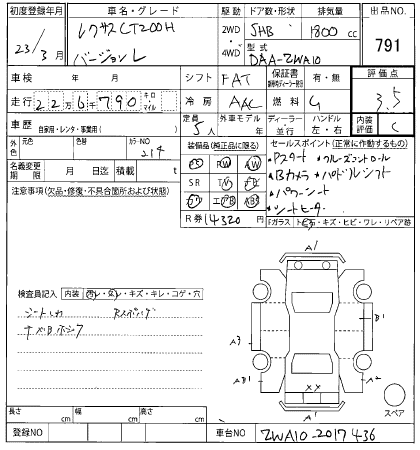 初度登録年月 車名・グレード 駆動 ドア数・形状 排気量 出品NO.
23/3月 レクサスCT200H 2WD・4WD 5HB 1800cc 791
バージョンL 型式 DAA-ZWA10
車検 年 月 シフト FAT 保証書 有・無 評価点
走行 22万6千790 キロ マイル 冷房 AAC 燃料 G 3.5
車歴 自家用・レンタ・事業用( ) 定員 5人 外車モデル 年 ディーラー 並行 ハンドル 左・右 内装評価 C
外色 元色 色替 カラーNO 214 装備品(純正品に限る) セールスポイント(正常に作動するもの)
PS PW AW
名義変更期限 月 日迄 積載 t SR TV
エアB ABS
・Pスタート ・クルーズコントロール
・Bカメラ ・パドルシフト
・パワーシート
・シートヒーター
注意事項(欠品・修復・不具合箇所および状態)
R券 14320円 Fガラス トビ石・キズ・ヒビ・ワレ・リペア跡
検査員記入 内装 キズ・キレ・コゲ・穴
A1
B1
A3
AB1
A2
XX
A1
スペア
長さ cm 幅 cm 高さ cm
登録NO 車台NO ZWA10-2017436